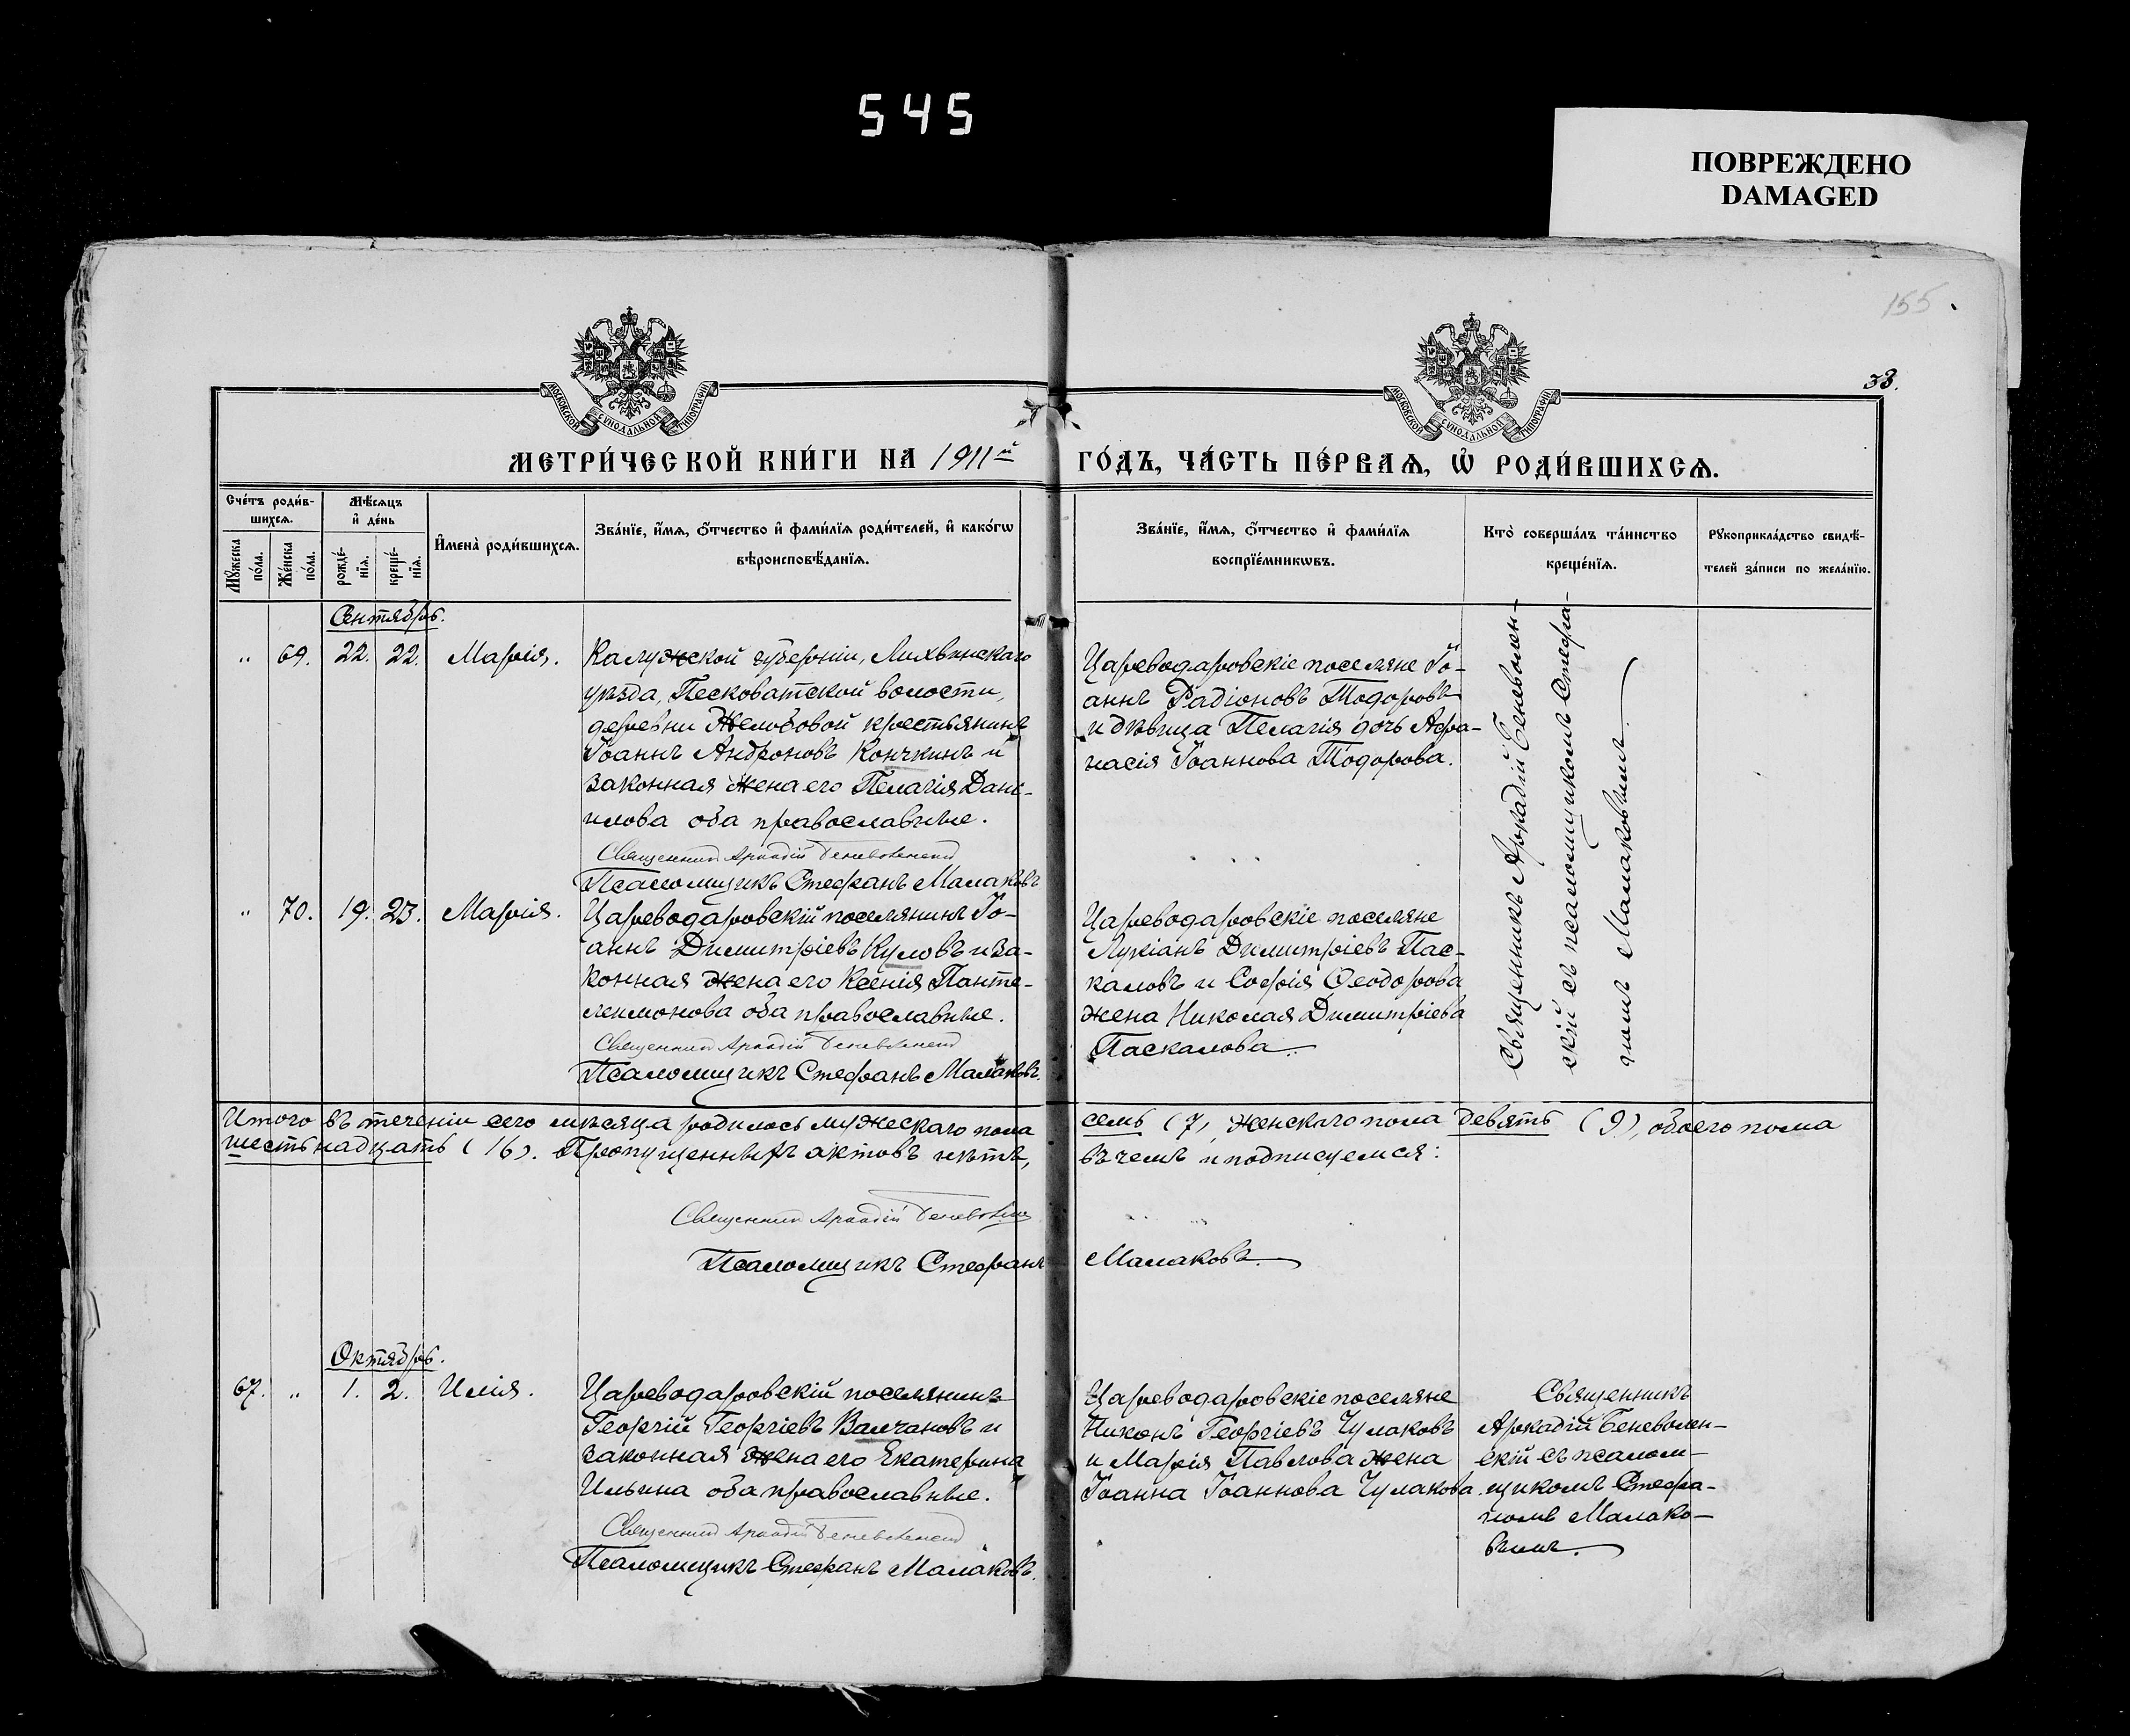 545
ПОВРЕЖДЕНО
DAMAGED
155
33.
МОСКОВСКОЙ СѴНОДАЛЬНОЙ ТИПОГРАФІИ
МОСКОВСКОЙ СѴНОДАЛЬНОЙ ТИПОГРАФІИ
МЕТРИ́ЧЕСКОЙ КНИ́ГИ НА 1911й ГО́ДЪ, ЧА́СТЬ ПЕ́РВАѦ, Ѡ҆ РОДИ́ВШИХСѦ.
Сче́тъ роди́в-
шихсѧ.
Мѣ́сѧцъ
и҆ де́нь
Мꙋ́жеска
по́ла.
Же́нска
по́ла.
рожде́-
нїѧ.
креще́-
нїѧ.
И҆мена̀ роди́вшихсѧ.
Зва́нїе, и҆́мѧ, ѻ҆́тчество и҆ фами́лїѧ роди́телей, и҆ како́гѡ
вѣроисповѣ́данїѧ.
Зва́нїе, и҆́мѧ, ѻ҆́тчество и҆ фами́лїѧ
воспрїе́мникѡвъ.
Кто̀ соверша́лъ та́инство
креще́нїѧ.
Рꙋкоприкла́дство свидѣ́-
телей за́писи по жела́нїю.
Сентябрь.
" 69. 22. 22. Марія.
Калужской губерніи, Лихвинскаго
уѣзда, Песковатской волости,
деревни Желобовой крестьянинъ
Іоаннъ Андроновъ Кончкинъ и
законная жена его Пелагія Дані-
илова оба православные.
Священник Аркадій Беневоленский
Псаломщикъ Стефанъ Малаковъ
Цареводаровскіе поселяне Іо-
аннъ Радіоновъ Тодоровъ
и дѣвица Пелагія дочь Афа-
насія Іоаннова Тодорова.
Священникъ Аркадій Беневолен-
скій съ псаломщикомъ Стефа-
номъ Малаковымъ
" 70. 19. 23. Марія.
Цареводаровскій поселянинъ Іо-
аннъ Димитріевъ Куловъ и за-
конная жена его Ксенія Панте-
леимонова оба православные.
Священник Аркадій Беневоленский
Псаломщикъ Стефанъ Малаковъ.
Цареводаровскіе поселяне
Лукіанъ Димитріевъ Пас-
каловъ и Софія Ѳеодорова
жена Николая Димитріева
Паскалова.
Итого въ теченіи сего мѣсяца родилось мужескаго пола семь (7), женскаго пола девять (9), обоего пола
шестьнадцать (16). Пропущенныхъ актовъ нѣтъ, въ чемъ и подписуемся:
Священник Аркадій Беневоленский
Псаломщикъ Стефанъ Малаковъ.
Октябрь.
67. " 1. 2. Илія.
Цареводаровскій поселянинъ
Георгій Георгіевъ Валчановъ и
законная жена его Екатерина
Ильина оба православные.
Священник Аркадій Беневоленский
Псаломщикъ Стефанъ Малаковъ.
Цареводаровскіе поселяне
Никонъ Георгіевъ Чулаковъ
и Марія Павлова жена
Іоанна Іоаннова Чулакова.
Священникъ
Аркадій Беневолен-
скій съ псалом-
щикомъ Стефа-
номъ Малако-
вымъ.